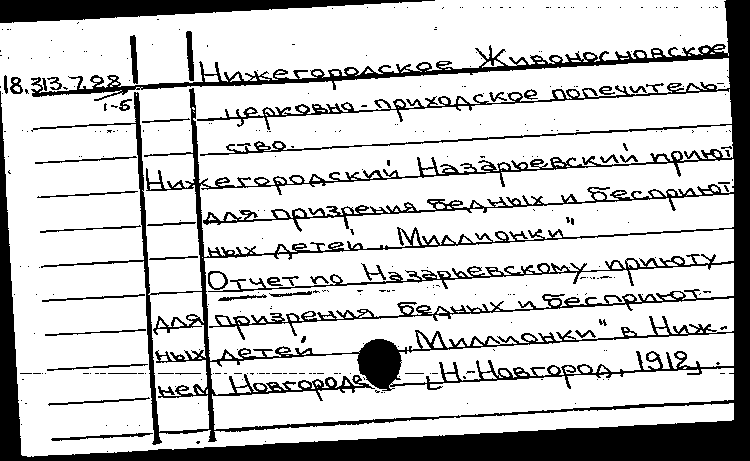 18.313.7.28
1-5
Нижегородское Живоносновское
церковно-приходское попечитель-
ство.
Нижегородский Назарьевский приют
для призрения бедных и бесприют-
ных детей „Миллионки"
Отчет по Назарьевскому приюту
для призрения бедных и бесприют-
ных детей „Миллионки" в Ниж-
нем Новгороде Н.-Новгород, 1912,.